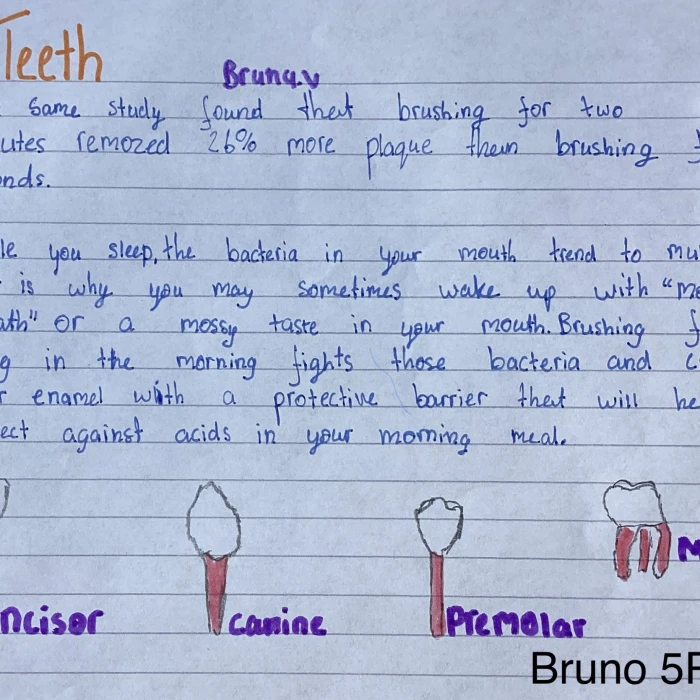 Teeth
Bruno.v
same study found that brushing for two
utes remozed 26% more plaque than brushing f
onds.
le you sleep, the bacteria in your mouth trend to mu
is why you may sometimes wake up with "mo
ath" or a mossy taste in your mouth. Brushing f
g in the morning fights those bacteria and c
r enamel with a protective barrier that will he
ect against acids in your morning meal.
ncisor canine Premolar M
Bruno 5F